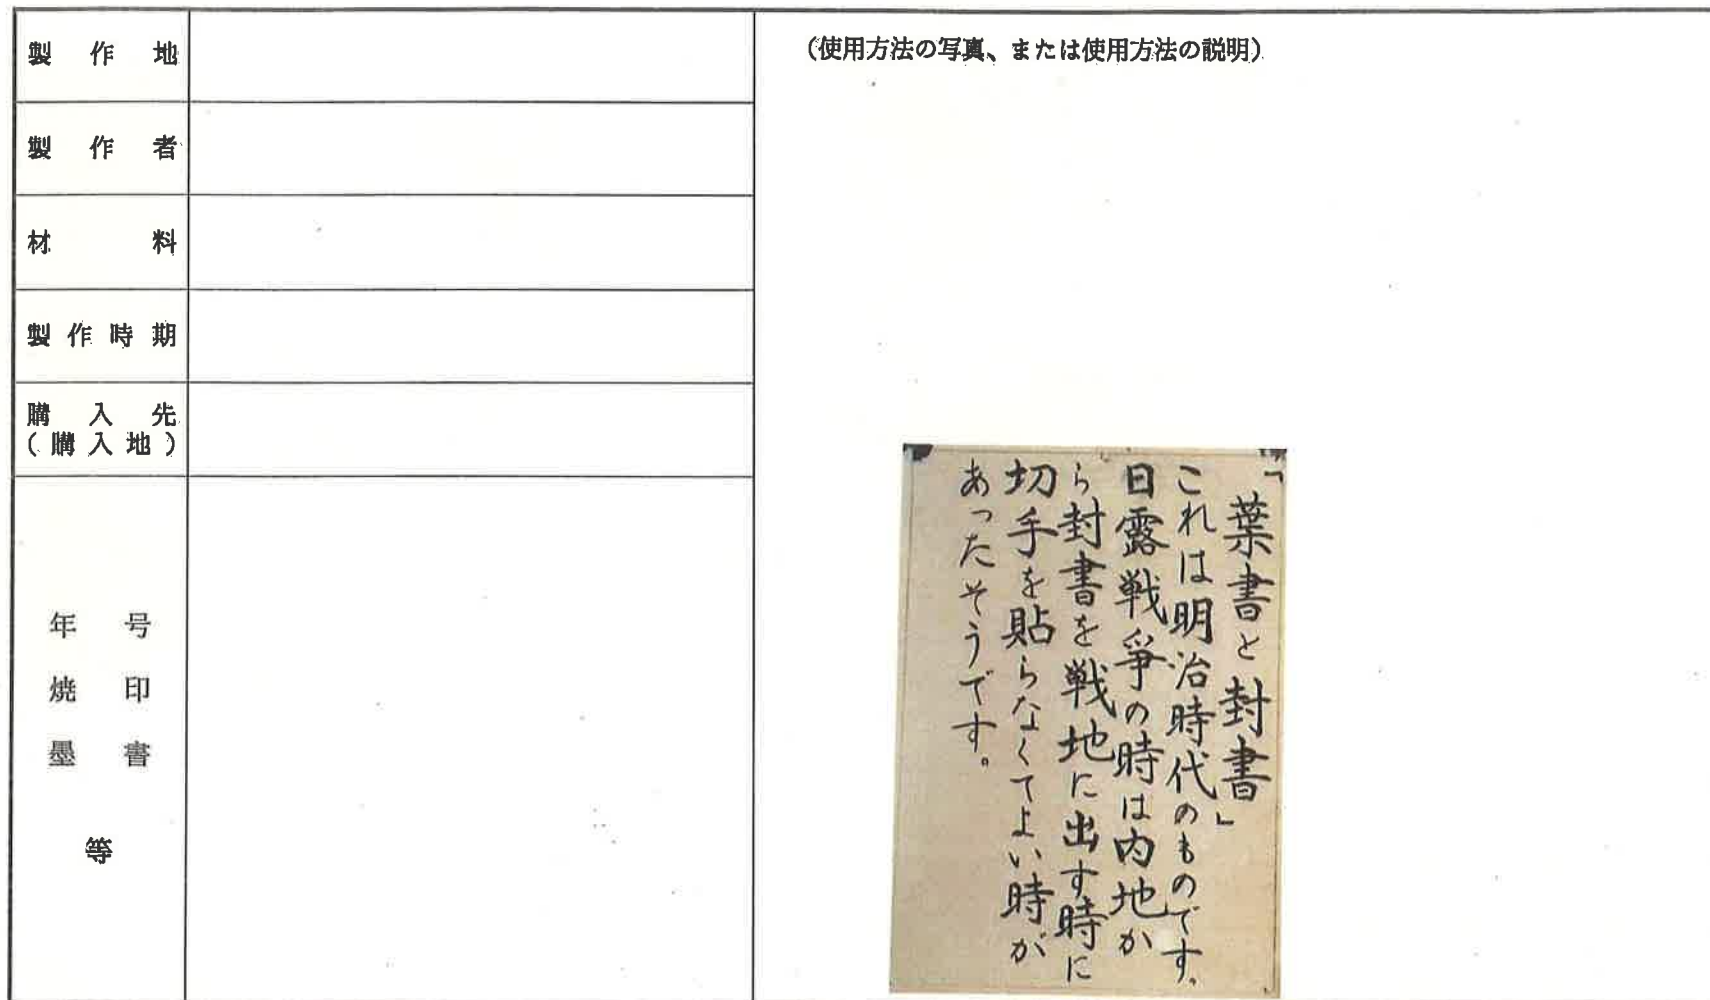 製作地
製作者
材料
製作時期
購入先
(購入地)
年号
焼印
墨書
等
(使用方法の写真、または使用方法の説明)
「葉書と封書」
これは明治時代のものです。
日露戦爭の時は内地か
ら封書を戦地に出す時に
切手を貼らなくてよい時が
あったそうです。